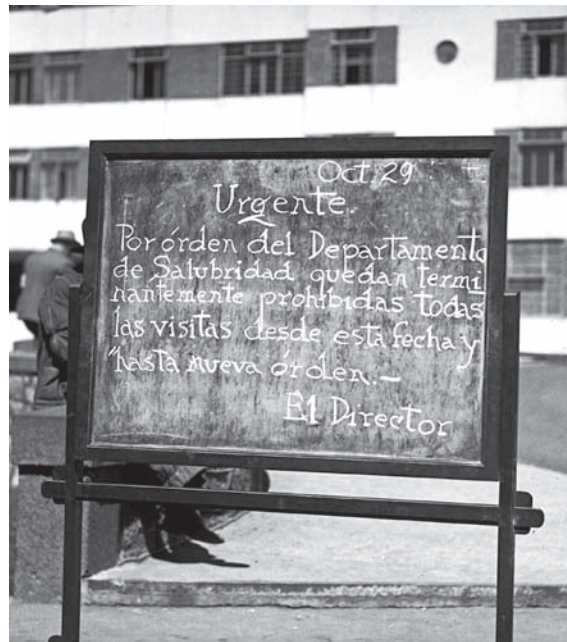 Oct 29
Urgente.
Por órden del Departamento
de Salubridad quedan termi
nantemente prohibidas todas
las visitas desde esta fecha y
"hasta nueva órden.—
El Director